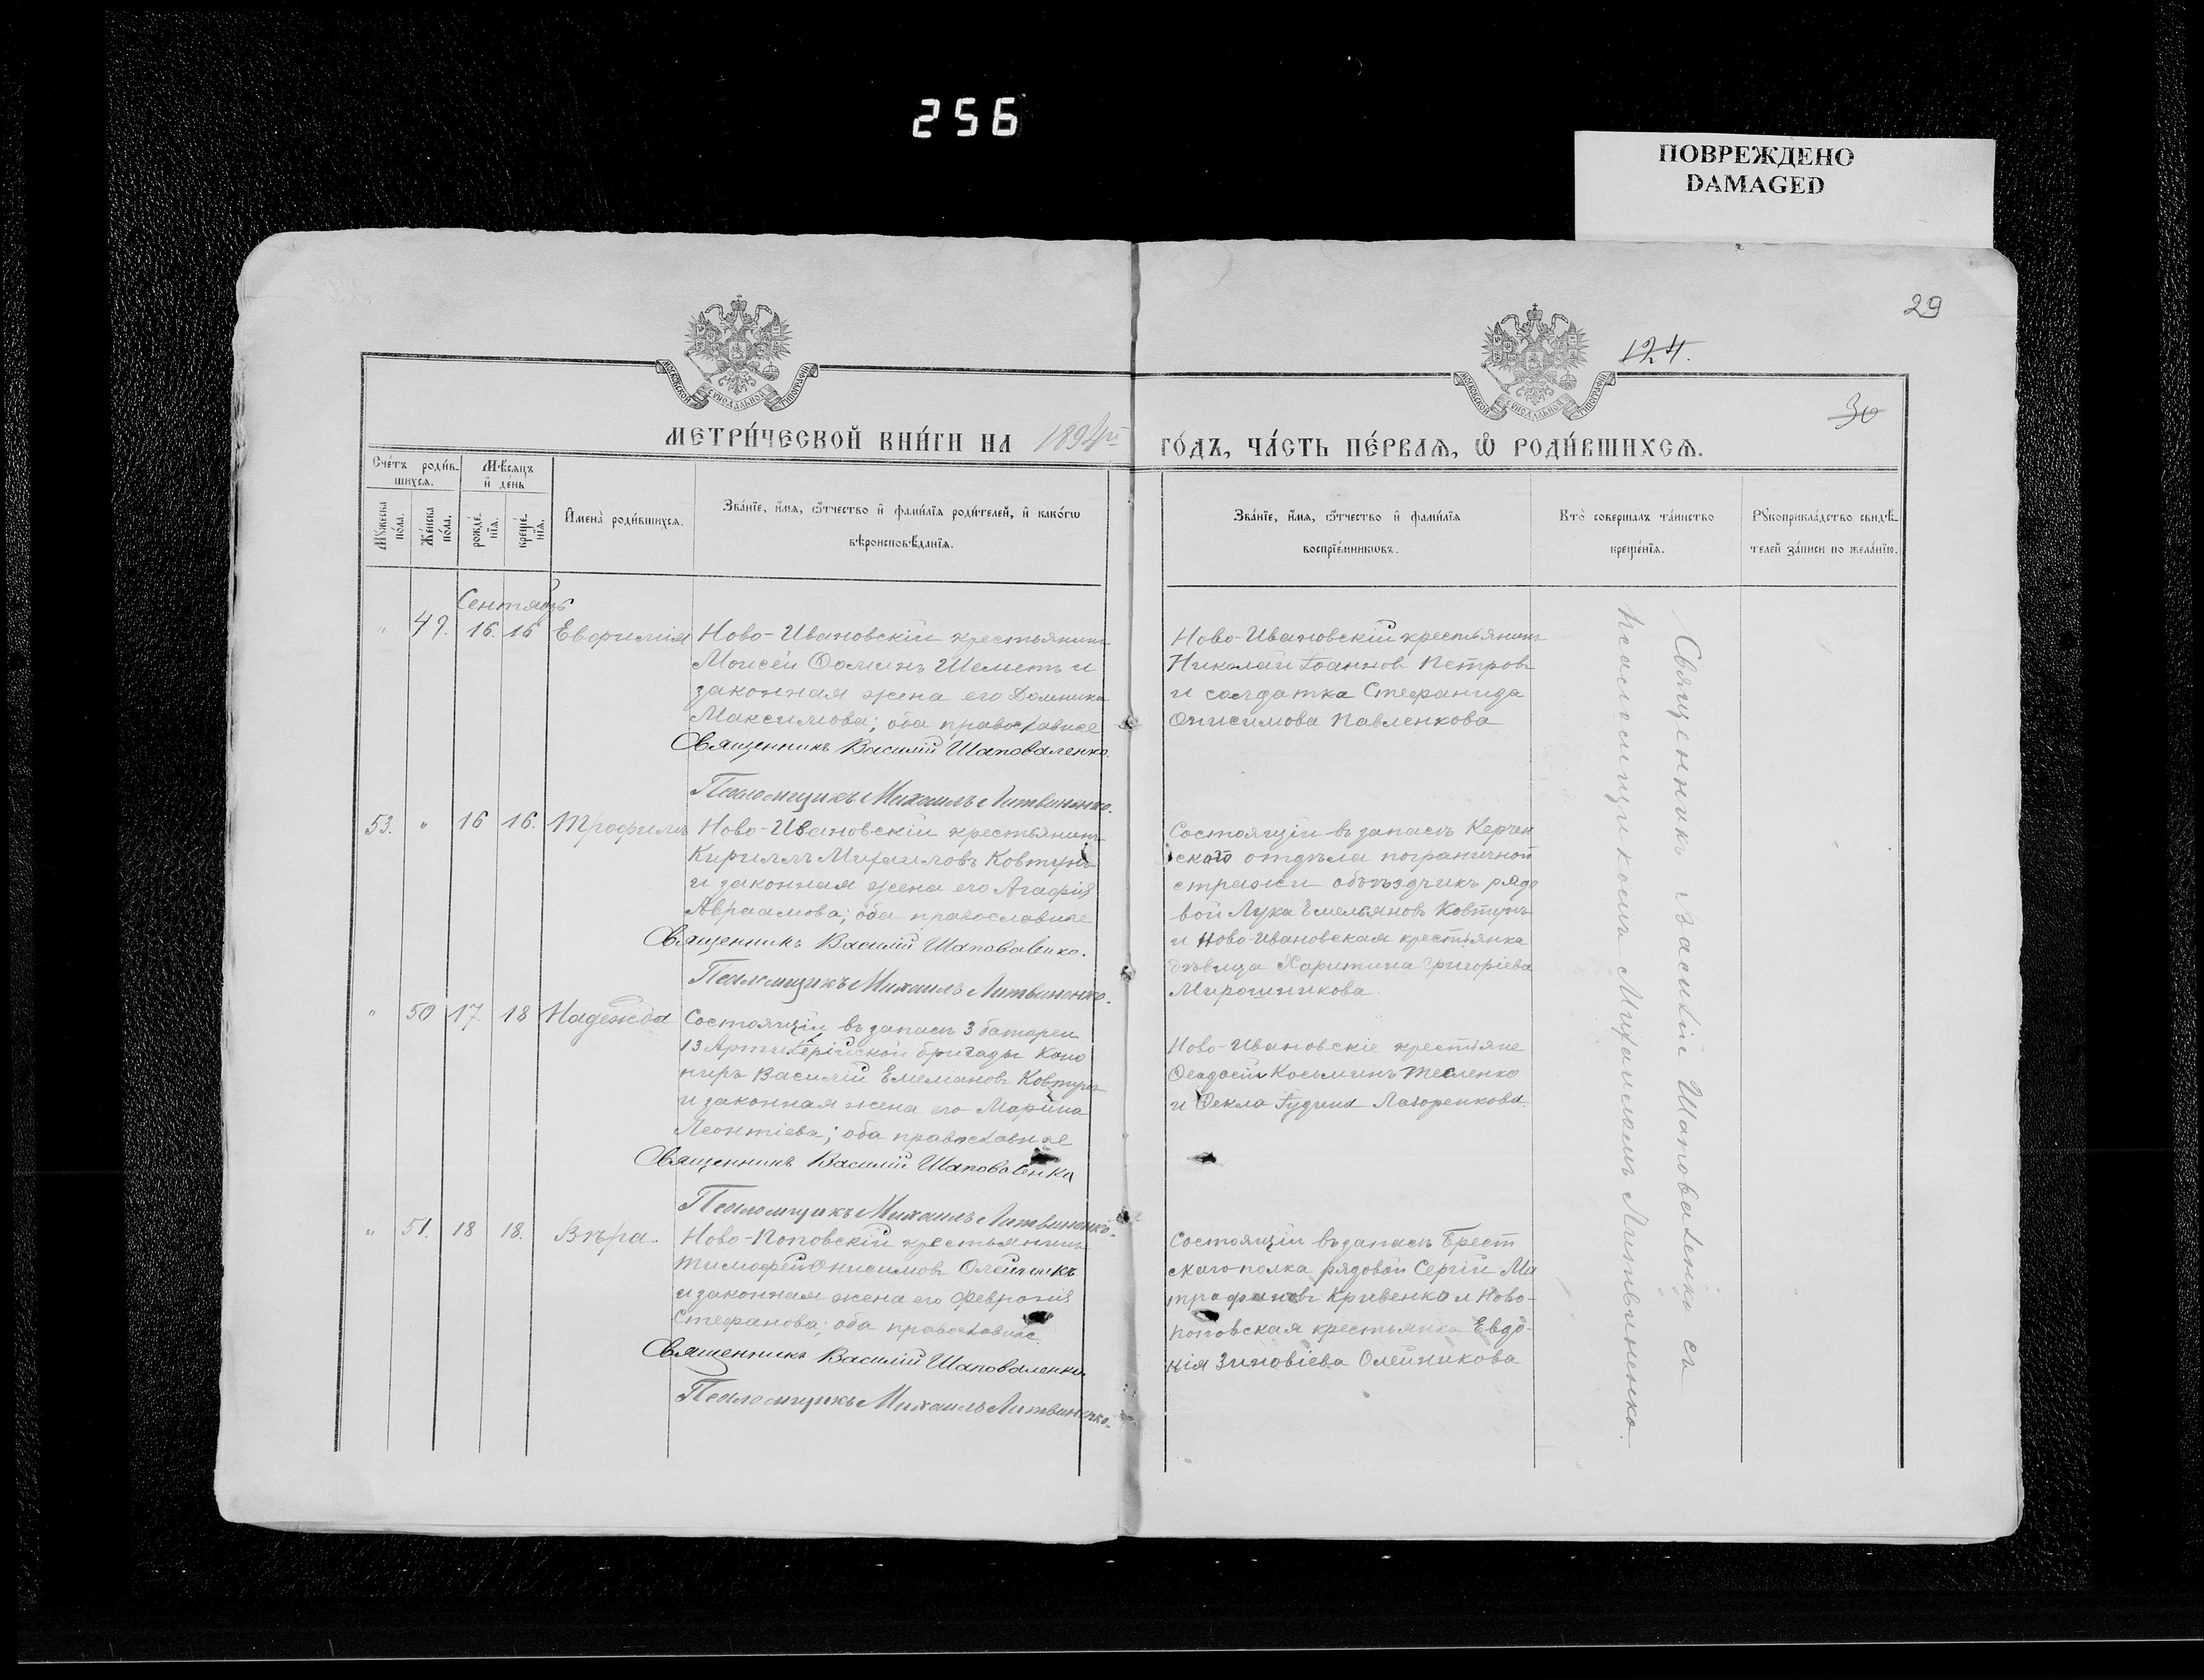 256
ПОВРЕЖДЕНО
DAMAGED
29
124.
30
МОСКОВСКОЙ СѴНОДАЛЬНОЙ ТИПОГРАФІИ
МОСКОВСКОЙ СѴНОДАЛЬНОЙ ТИПОГРАФІИ
МЕТРИ́ЧЕСКОЙ КНИ́ГИ НА 1894й
ГО́ДЪ, ЧА́СТЬ ПЕ́РВАѦ, Ѽ РОДИ́ВШИХСѦ.
Сче́тъ роди́в-
шихсѧ.
Мѣ́сѧцъ
и҆ де́нь
Мꙋ́жеска
по́ла.
Же́нска
по́ла.
рожде́-
нїѧ.
креще́-
нїѧ.
И҆мена̀ роди́вшихсѧ.
Зва́нїе, и҆́мѧ, ѻ҆́тчество и҆ фами́лїѧ роди́телей, и҆ како́гѡ
вѣроисповѣ́данїѧ.
Зва́нїе, и҆́мѧ, ѻ҆́тчество и҆ фами́лїѧ
воспрїе́мникѡвъ.
Кто̀ соверша́лъ та́инство
креще́нїѧ.
Рꙋкоприкла́дство свидѣ́-
телей за́писи по жела́нїю.
Сентябрь
" 49. 16. 16 Евфимія
Ново-Ивановскій крестьянинъ
Моисей Ѳоминъ Шеметъ и
законная жена его Домника
Максимова; оба православные
Священникъ Василій Шаповаленко.
Псаломщикъ Михаилъ Литвиненко.
Ново-Ивановскій крестьянинъ
Николай Іоанновъ Петровъ
и солдатка Стефанида
Онисимова Павленкова
53. " 16 16. Трофимъ
Ново-Ивановскій крестьянинъ
Кириллъ Михаиловъ Ковтунъ
и законная жена его Агафія
Авраамова; оба православные
Священникъ Василій Шаповаленко.
Псаломщикъ Михаилъ Литвиненко.
Состоящій въ запасѣ Керчен
скаго отдѣла пограничной
стражи объѣздчикъ рядо
вой Лука Емельяновъ Ковтунъ
и Ново-Ивановская крестьянка
дѣвица Харитина Григоріева
Мирошникова
" 50 17 18 Надежда
Состоящій въ запасѣ 3 батареи
13 Артилерійской бригады Кано
ниръ Василій Емельяновъ Ковтунъ
и законная жена его Марина
Леонтіева; оба православные
Священникъ Василій Шаповаленко
Псаломщикъ Михаилъ Литвиненко.
Ново-Ивановскіе крестьяне
Ѳеодосій Косьминъ Тесленко
и Ѳекла Іудина Лазоренкова.
" 51. 18 18. Вѣра.
Ново-Поповскій крестьянинъ
Тимофей Онисимовъ Олейникъ
и законная жена его Февронія
Стефанова; оба православные.
Священникъ Василій Шаповаленко
Псаломщикъ Михаилъ Литвиненко.
Состоящій въ запасѣ Брест
скаго полка рядовой Сергій Ми
трофановъ Кривенко и Ново-
поповская крестьянка Евдо-
кія Зиновіева Олейникова
Священникъ Василій Шаповаленко съ
псаломщикомъ Михаиломъ Литвиненко.